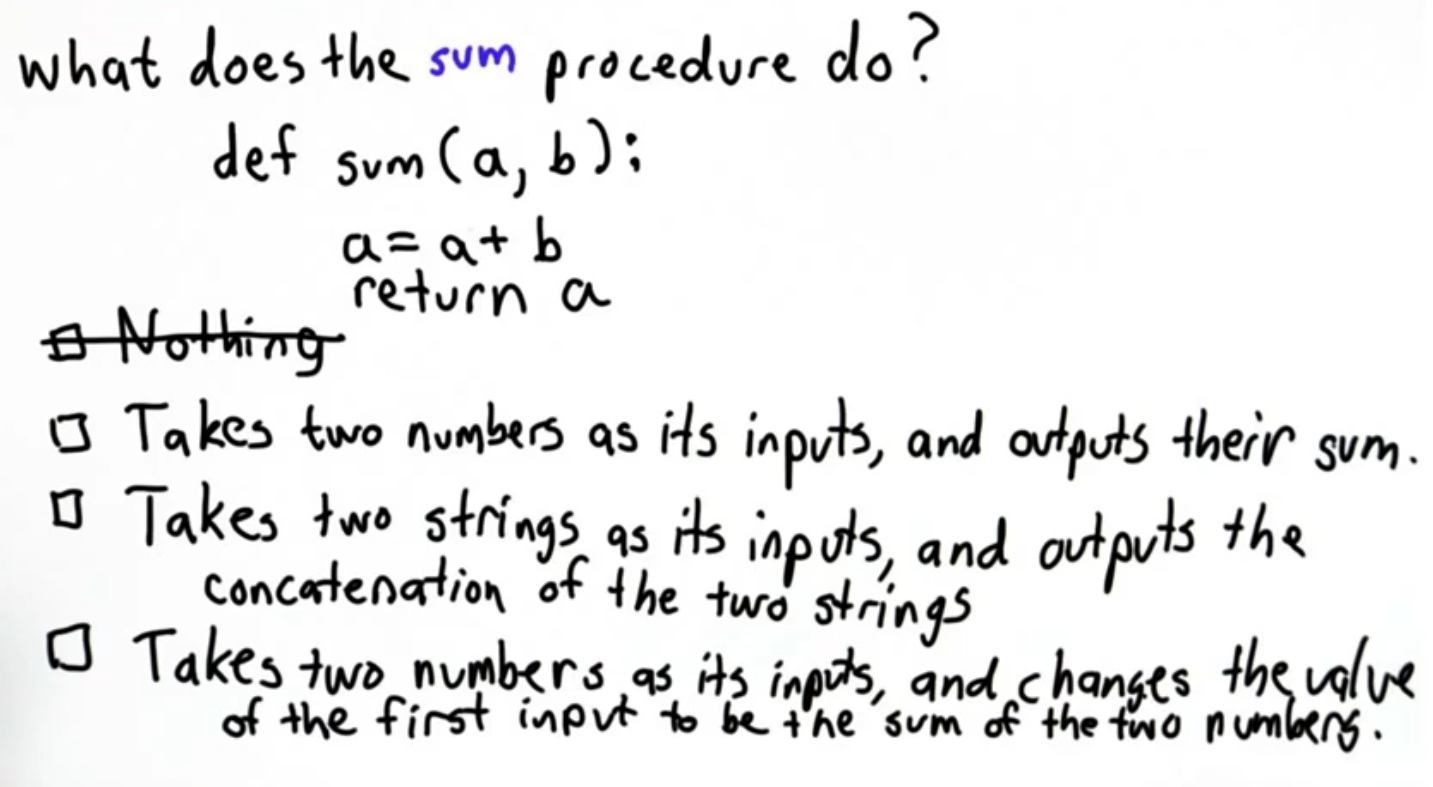 what does the sum procedure do?
def sum(a, b):
a = a + b
return a
□ Nothing
□ Takes two numbers as its inputs, and outputs their sum.
□ Takes two strings as its inputs, and outputs the
concatenation of the two strings
□ Takes two numbers as its inputs, and changes the value
of the first input to be the sum of the two numbers.